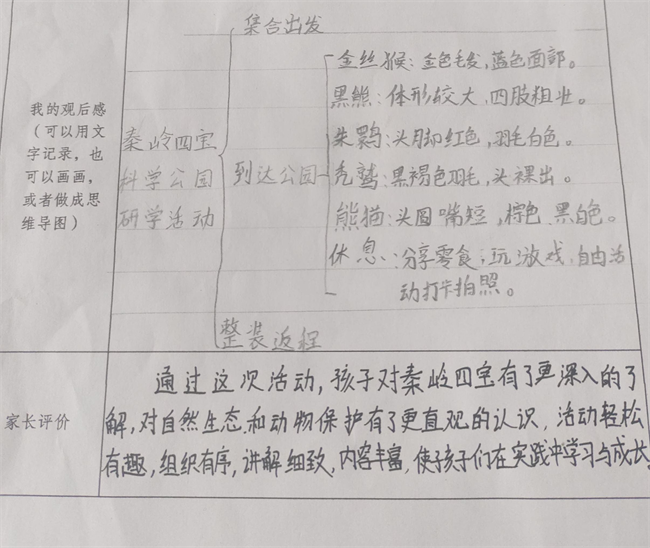 集合出发
金丝猴：金色毛发，蓝色面部。
黑熊：体形较大，四肢粗壮。
我的观后感
（可以用文
字记录，也
可以画画，
或者做成思
维导图）
秦岭四宝
科学公园
研学活动
到达公园
朱鹮：头脚红色，羽毛白色。
秃鹫：黑褐色羽毛，头裸出。
熊猫：头圆嘴短，棕色、黑白色。
休息：分享零食，玩游戏，自由活
动打卡拍照。
整装返程
家长评价
通过这次活动，孩子对秦岭四宝有了更深入的了
解，对自然生态和动物保护有了更直观的认识，活动轻松
有趣，组织有序，讲解细致，内容丰富，使孩子们在实践中学习与成长。